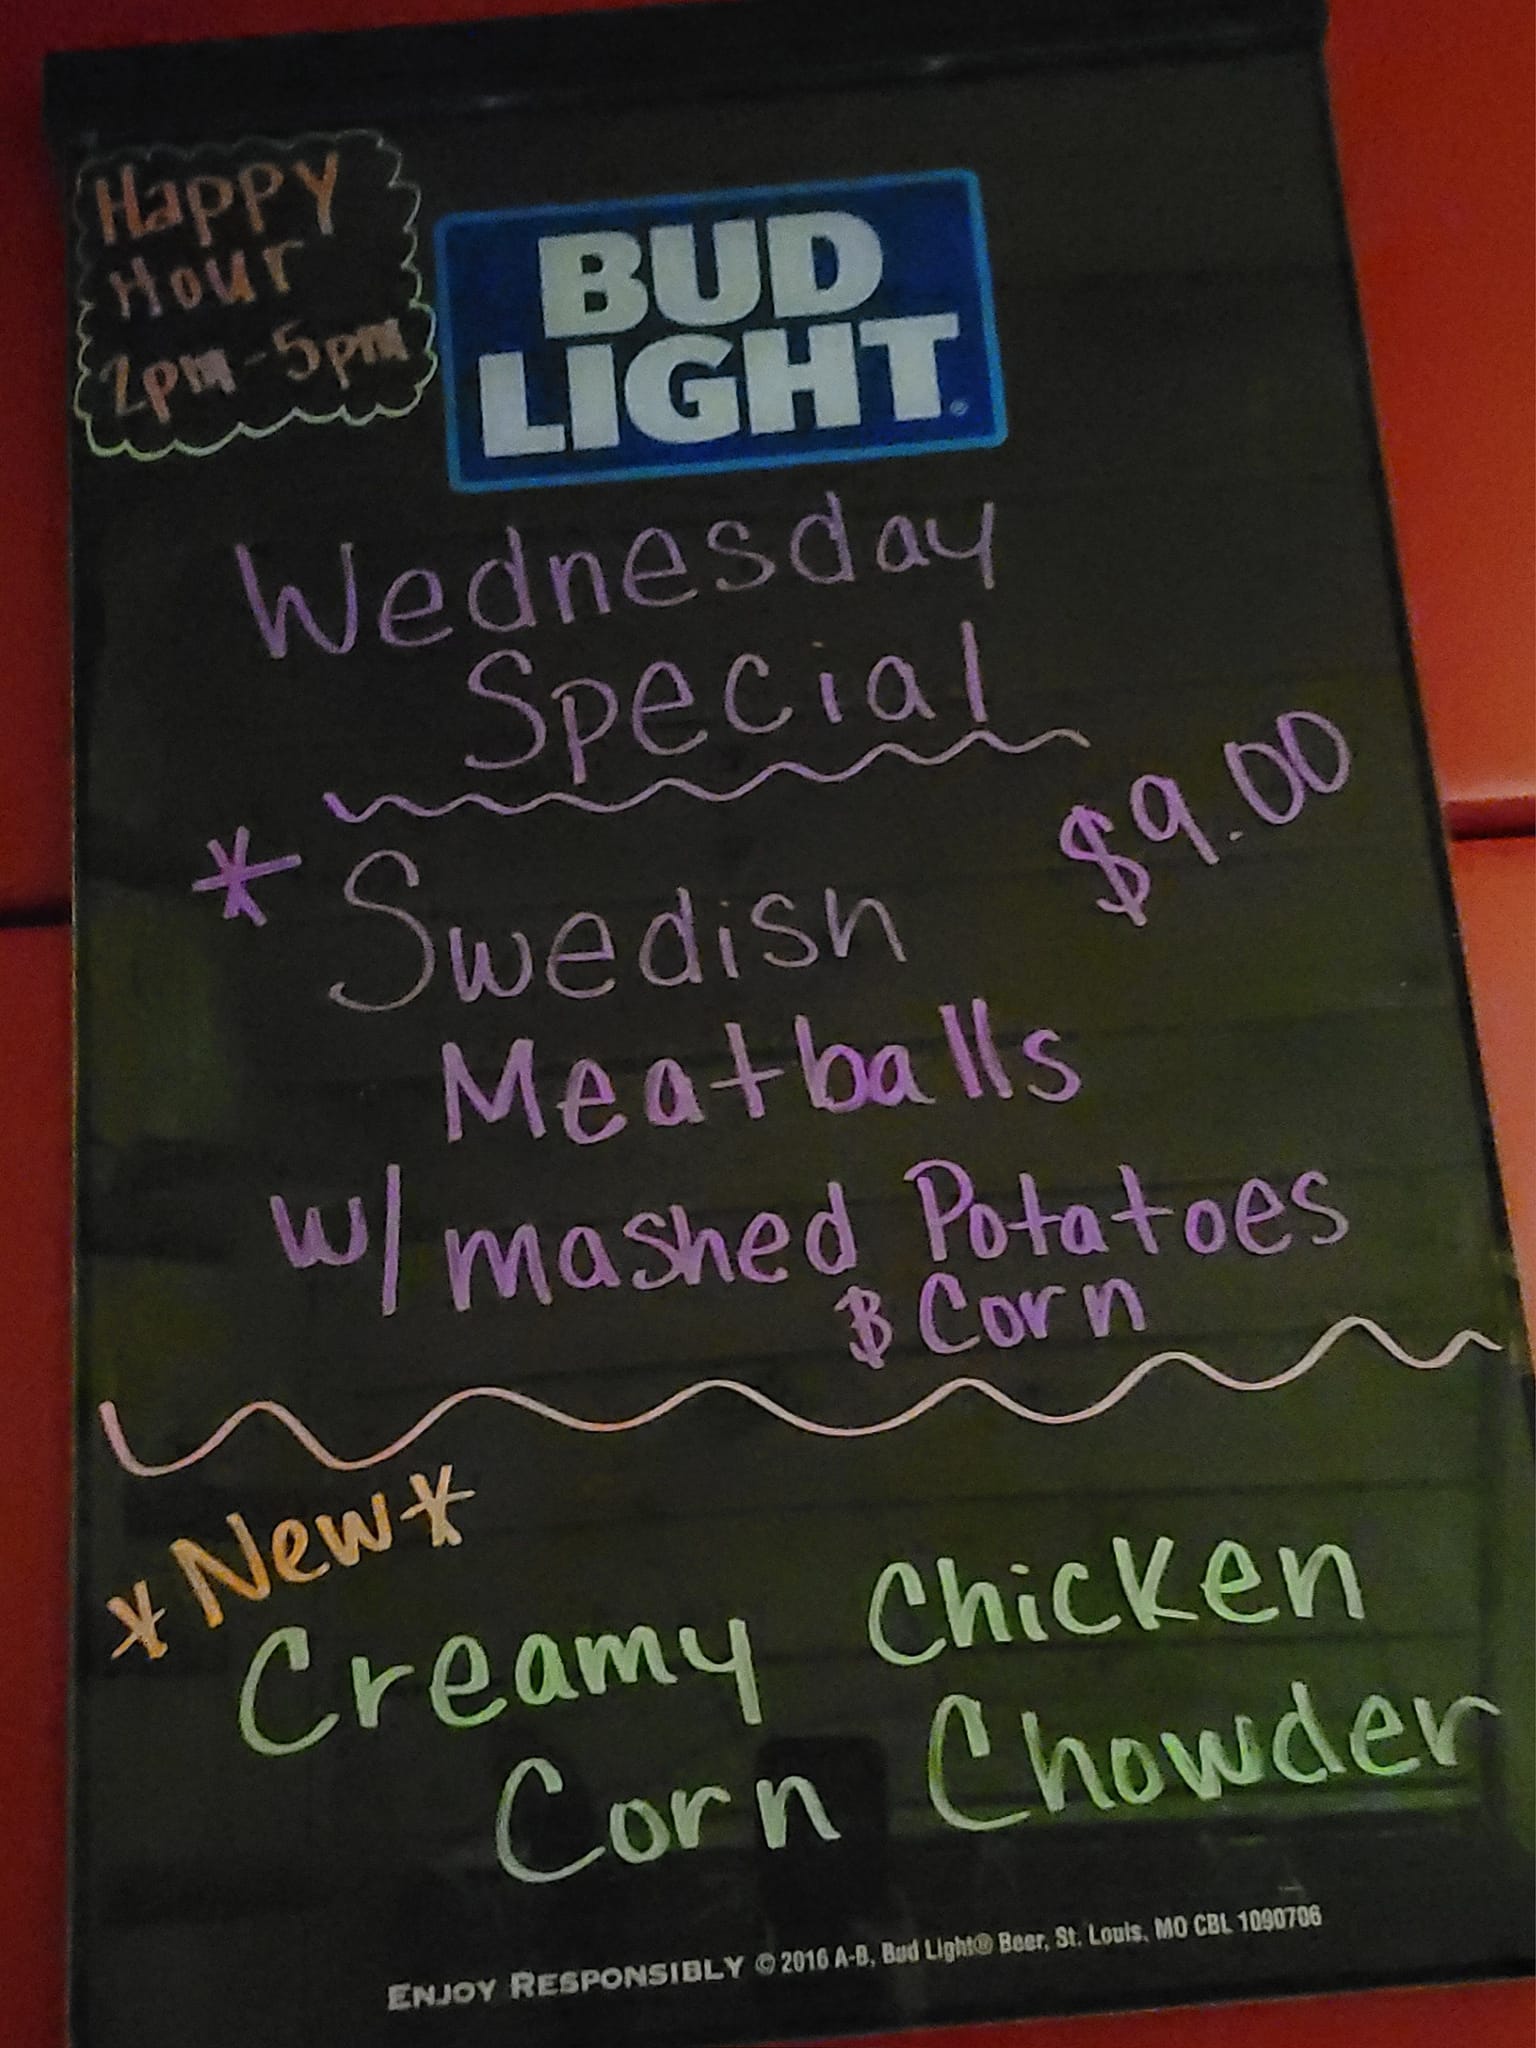 Happy
Hour
2pm-5pm
BUD
LIGHT®
Wednesday
Special
* Swedish $9.00
Meatballs
w/ mashed Potatoes
& Corn
*New*
Creamy Chicken
Corn Chowder
ENJOY RESPONSIBLY © 2016 A-B, Bud Light® Beer, St. Louis, MO CBL 1090706